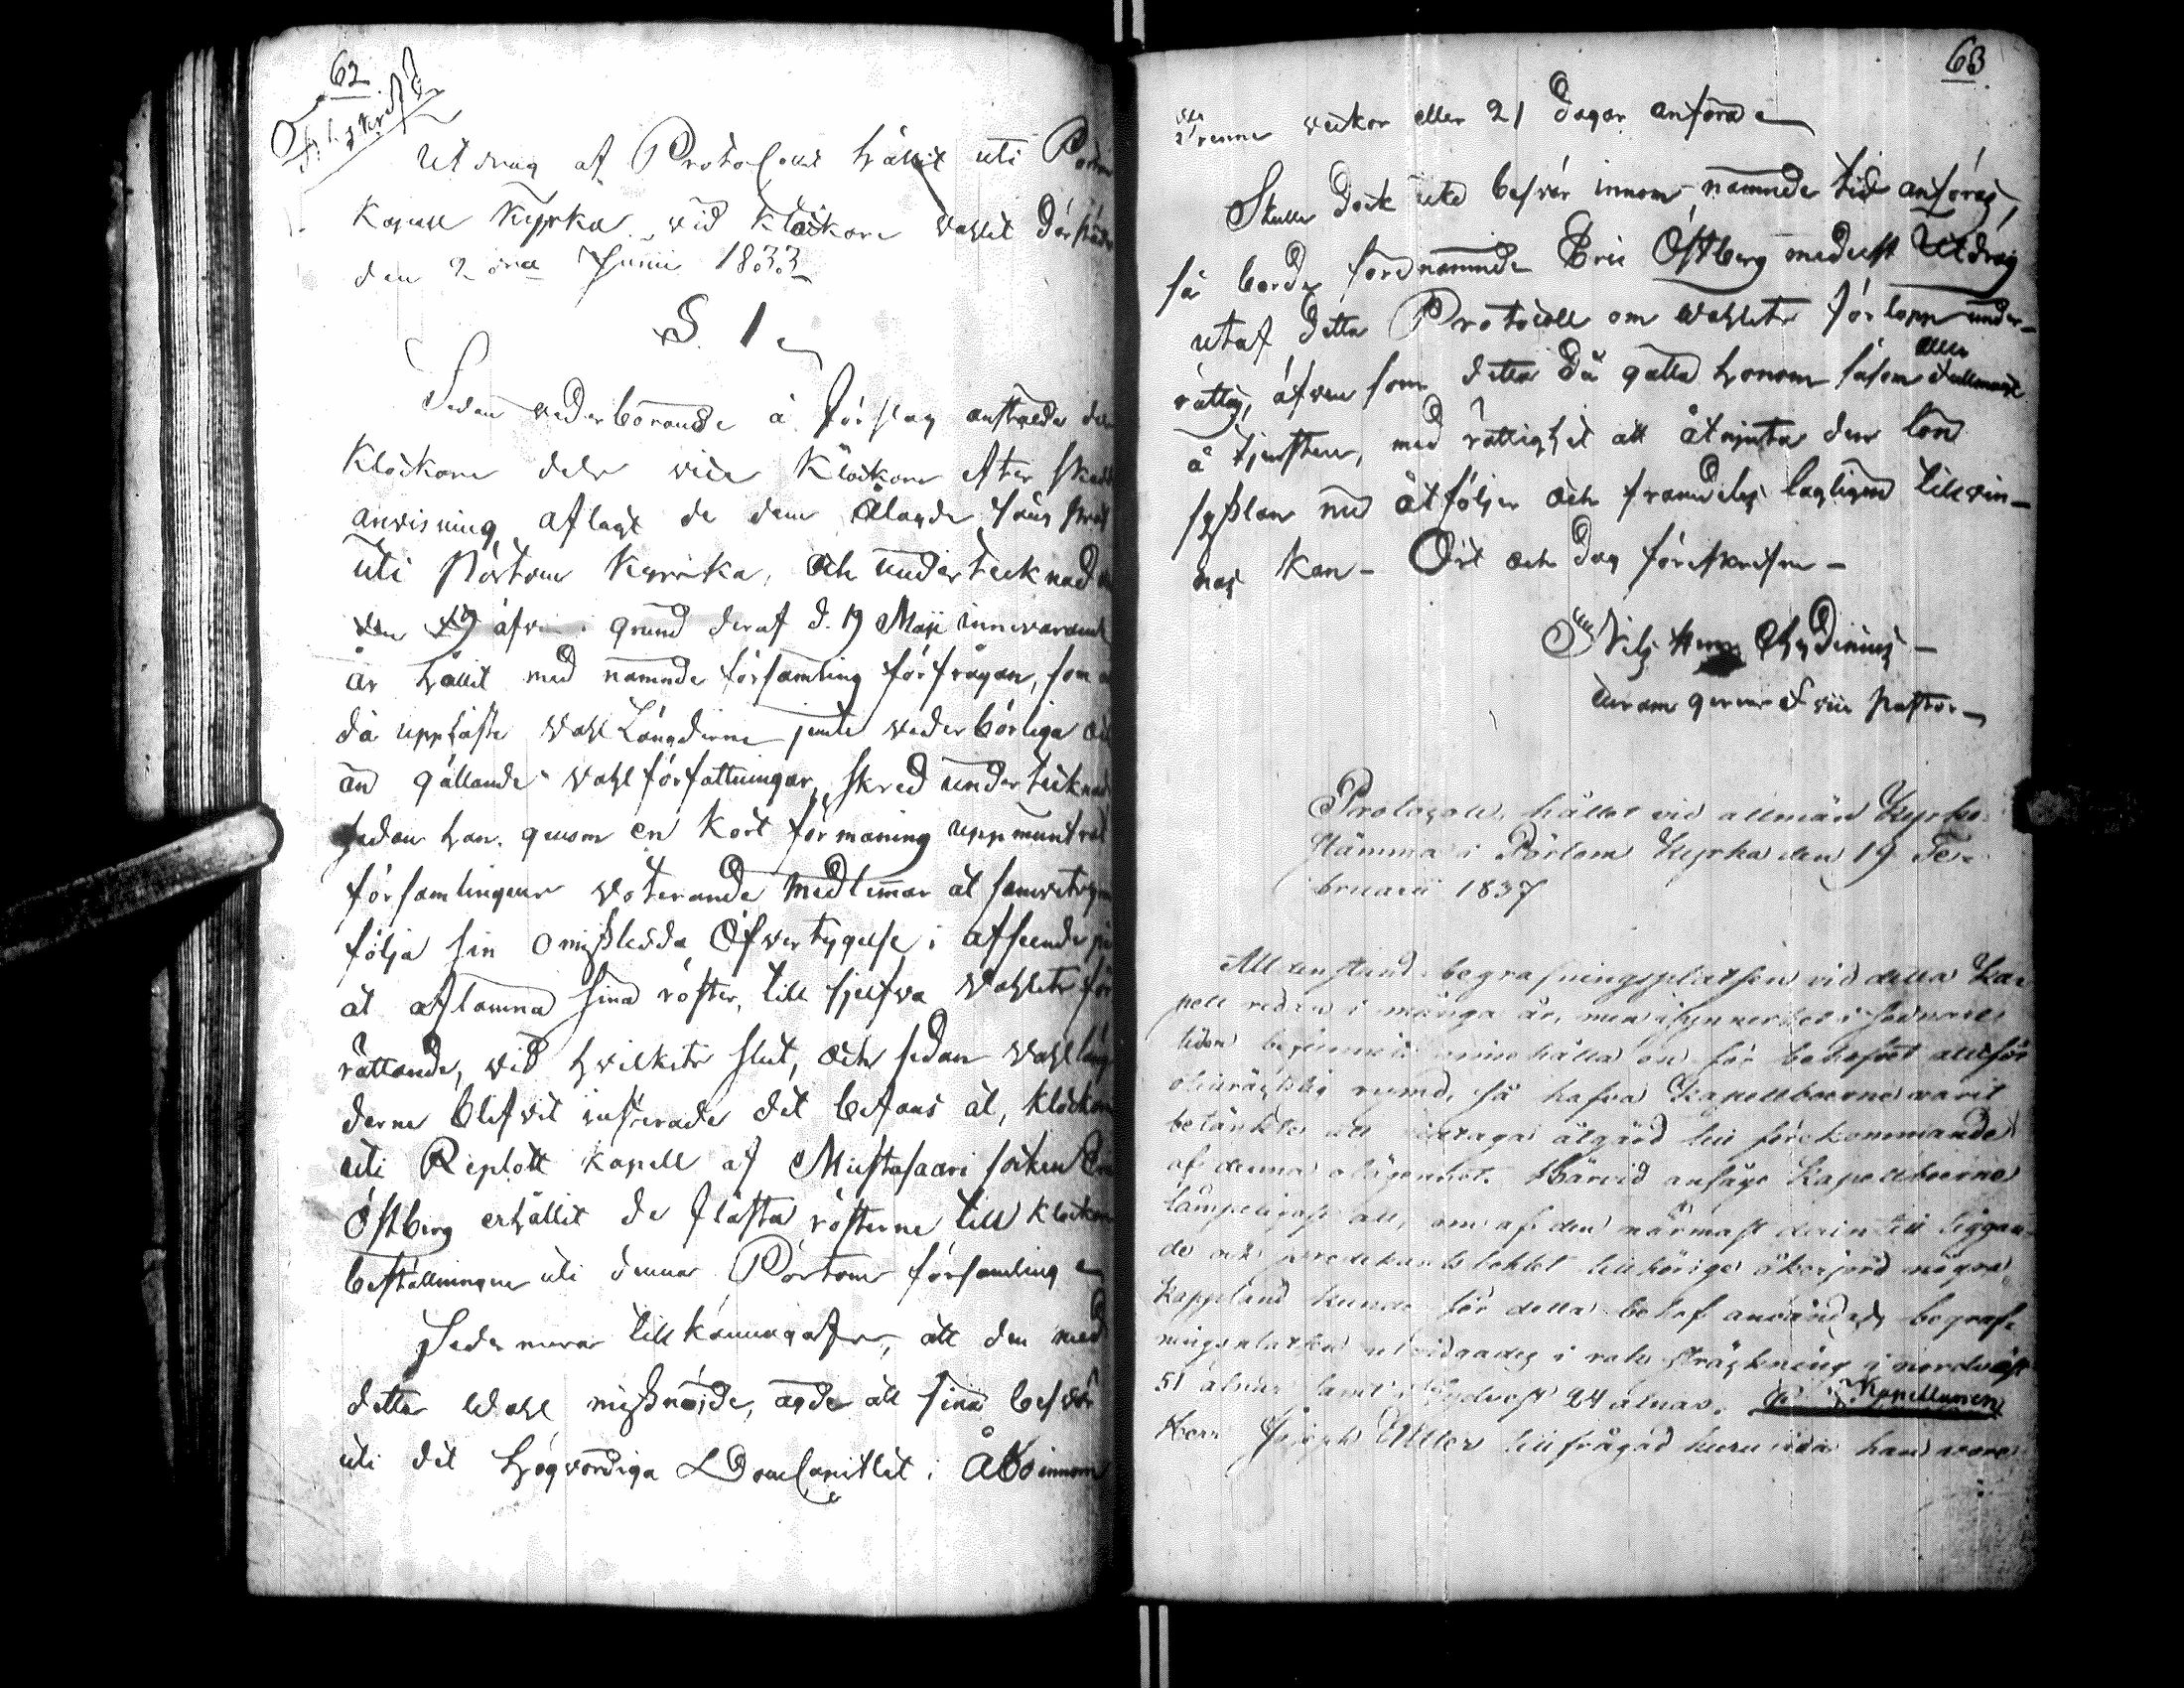 62
Afskrift
Utdrag af Protocoll hållit uti Pörtom
Kapell Kyrka vid Klockare wahlet därstädes
den 2 dra Junii 1833
§. 1
Sedan vederbörande å förslag anstälde
Klockare dels vice Klockare efter skedd
anvisning aflagt de dem ålagde sång prof
uti Pörtom Kyrka, och undertecknad
den 19 äfv. grund deraf d. 19 Maji innevarande
år hållit med nämnde församling förfrågan, som
då uppläste Wahl Längderne jemte vederbörliga och
än gällande Wahlförfattningar, skred undertecknad
sedan han genom en kort förmaning uppmuntrat
församlingens voterande medlemmar at samvets
följa sin omißledda Öfvertygelse i afseende på
at aflämna sina röster, till sjelfva Wahlets för
rättande, vid hvilkets slut, och sedan Wahl läng
derne blifvit justerade det befans at, klockare
uti Replott kapell af Mustasaari socken Eric
Östberg erhållit de flästa rösterne till klockare
beställningen uti denna Pörtom församling
Sedermera tillkännagafs, att den med
detta Wahl mißnöjde, ägde att sina besvär
uti det Högvördiga DomCapitlet i Åbo innom
63
trenne veckor eller 21 dagar anföra
Skulle dock icke besvär innom nämnde tid anföras,
så borde förenämnde Eric Östberg medelst Utdrag
utaf detta Protocoll om Wahlets förlopp under-
rättas, äfven som detta då gälla honom såsom fullmagt
å tjensten, med rättighet att åtnjuta den lön
syßlan nu åtföljer och framdeles lagligen tillvin-
nas kan - Ort och dag förestrefne -
Nils Herm Chydenius -
vice pastor -
Protocoll, hållet vid allmän Kyrko
stämma i Pörtom Kyrka den 19 Fe-
bruarii 1837
Alldenstund begrafningsplatsen vid detta Ka-
pell redan i många år, men i synnerhet i sednare
tiden begynnt innehålla en för behofvet alltför
otillräcklig rymd, så hafva Kapellboerne varit
betänkte att vidtaga åtgärd till förekommande
af denna olägenhet. Härvid ansågo Kapellboerne
lämpligast att, om af den närmast derintill liggan-
de och predikantebohlet tillhörige åkerjord några
kappland kunde för detta behof användas, begraf-
ningsplatsen utvidgades i rak sträckning i nordväst
51 alnar samt i sydvest 24 alnar. Kapellanen
Herr Joseph Utter tillfrågad huruvida han vore